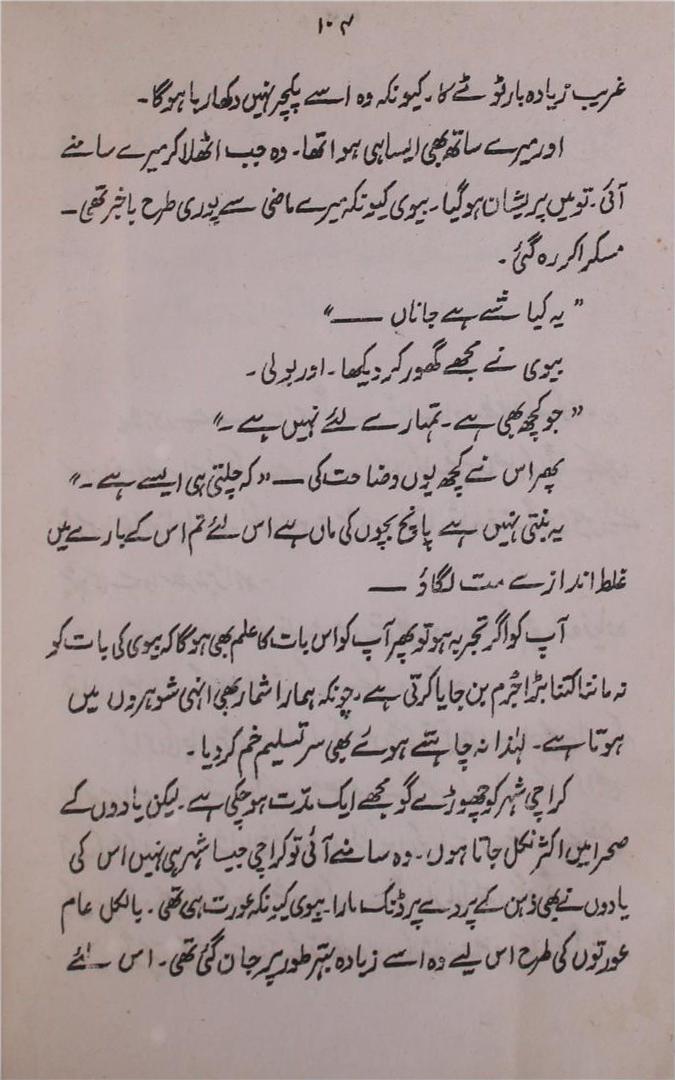 ۱۰۴
غریب زیادہ بار ٹوٹے گا۔ کیونکہ وہ اسے پکچر نہیں دکھا رہا ہوگا۔
اور میرے ساتھ بھی ایسا ہی ہوا تھا۔ وہ جب اٹھلا کر میرے سامنے
آئی۔ تو میں پریشان ہو گیا۔ بیوی کیونکہ میرے ماضی سے پوری طرح باخبر تھی۔
مسکرا کر رہ گئی۔
”یہ کیا شے ہے جاناں ——“
بیوی نے مجھے گھور کر دیکھا۔ اور بولی۔
”جو کچھ بھی ہے۔ تمہارے لئے نہیں ہے۔“
پھر اس نے کچھ یوں وضاحت کی — ”کہ چلتی ہی ایسے ہے۔“
یہ بنتی نہیں ہے پانچ بچوں کی ماں ہے اس لئے تم اس کے بارے میں
غلط انداز سے مت لگاؤ ——
آپ کو اگر تجربہ ہو تو پھر آپ کو اس بات کا علم بھی ہوگا کہ بیوی کی بات کو
نہ ماننا کتنا بڑا جُرم بن جایا کرتی ہے۔ چونکہ ہمارا شمار بھی انہی شوہروں میں
ہوتا ہے۔ لہٰذا نہ چاہتے ہوئے بھی سر تسلیم خم کر دیا۔
کراچی شہر کو چھوڑے گو مجھے ایک مدّت ہو چکی ہے۔ لیکن یادوں کے
صحرا میں اکثر نکل جاتا ہوں۔ وہ سامنے آئی تو کراچی جیسا شہر ہی نہیں اس کی
یادوں نے بھی ذہن کے پردے پر ڈنک مارا۔ بیوی کیونکہ عورت ہی تھی۔ بالکل عام
عورتوں کی طرح اس لیے وہ اسے زیادہ بہتر طور پر جان گئی تھی۔ اس لئے